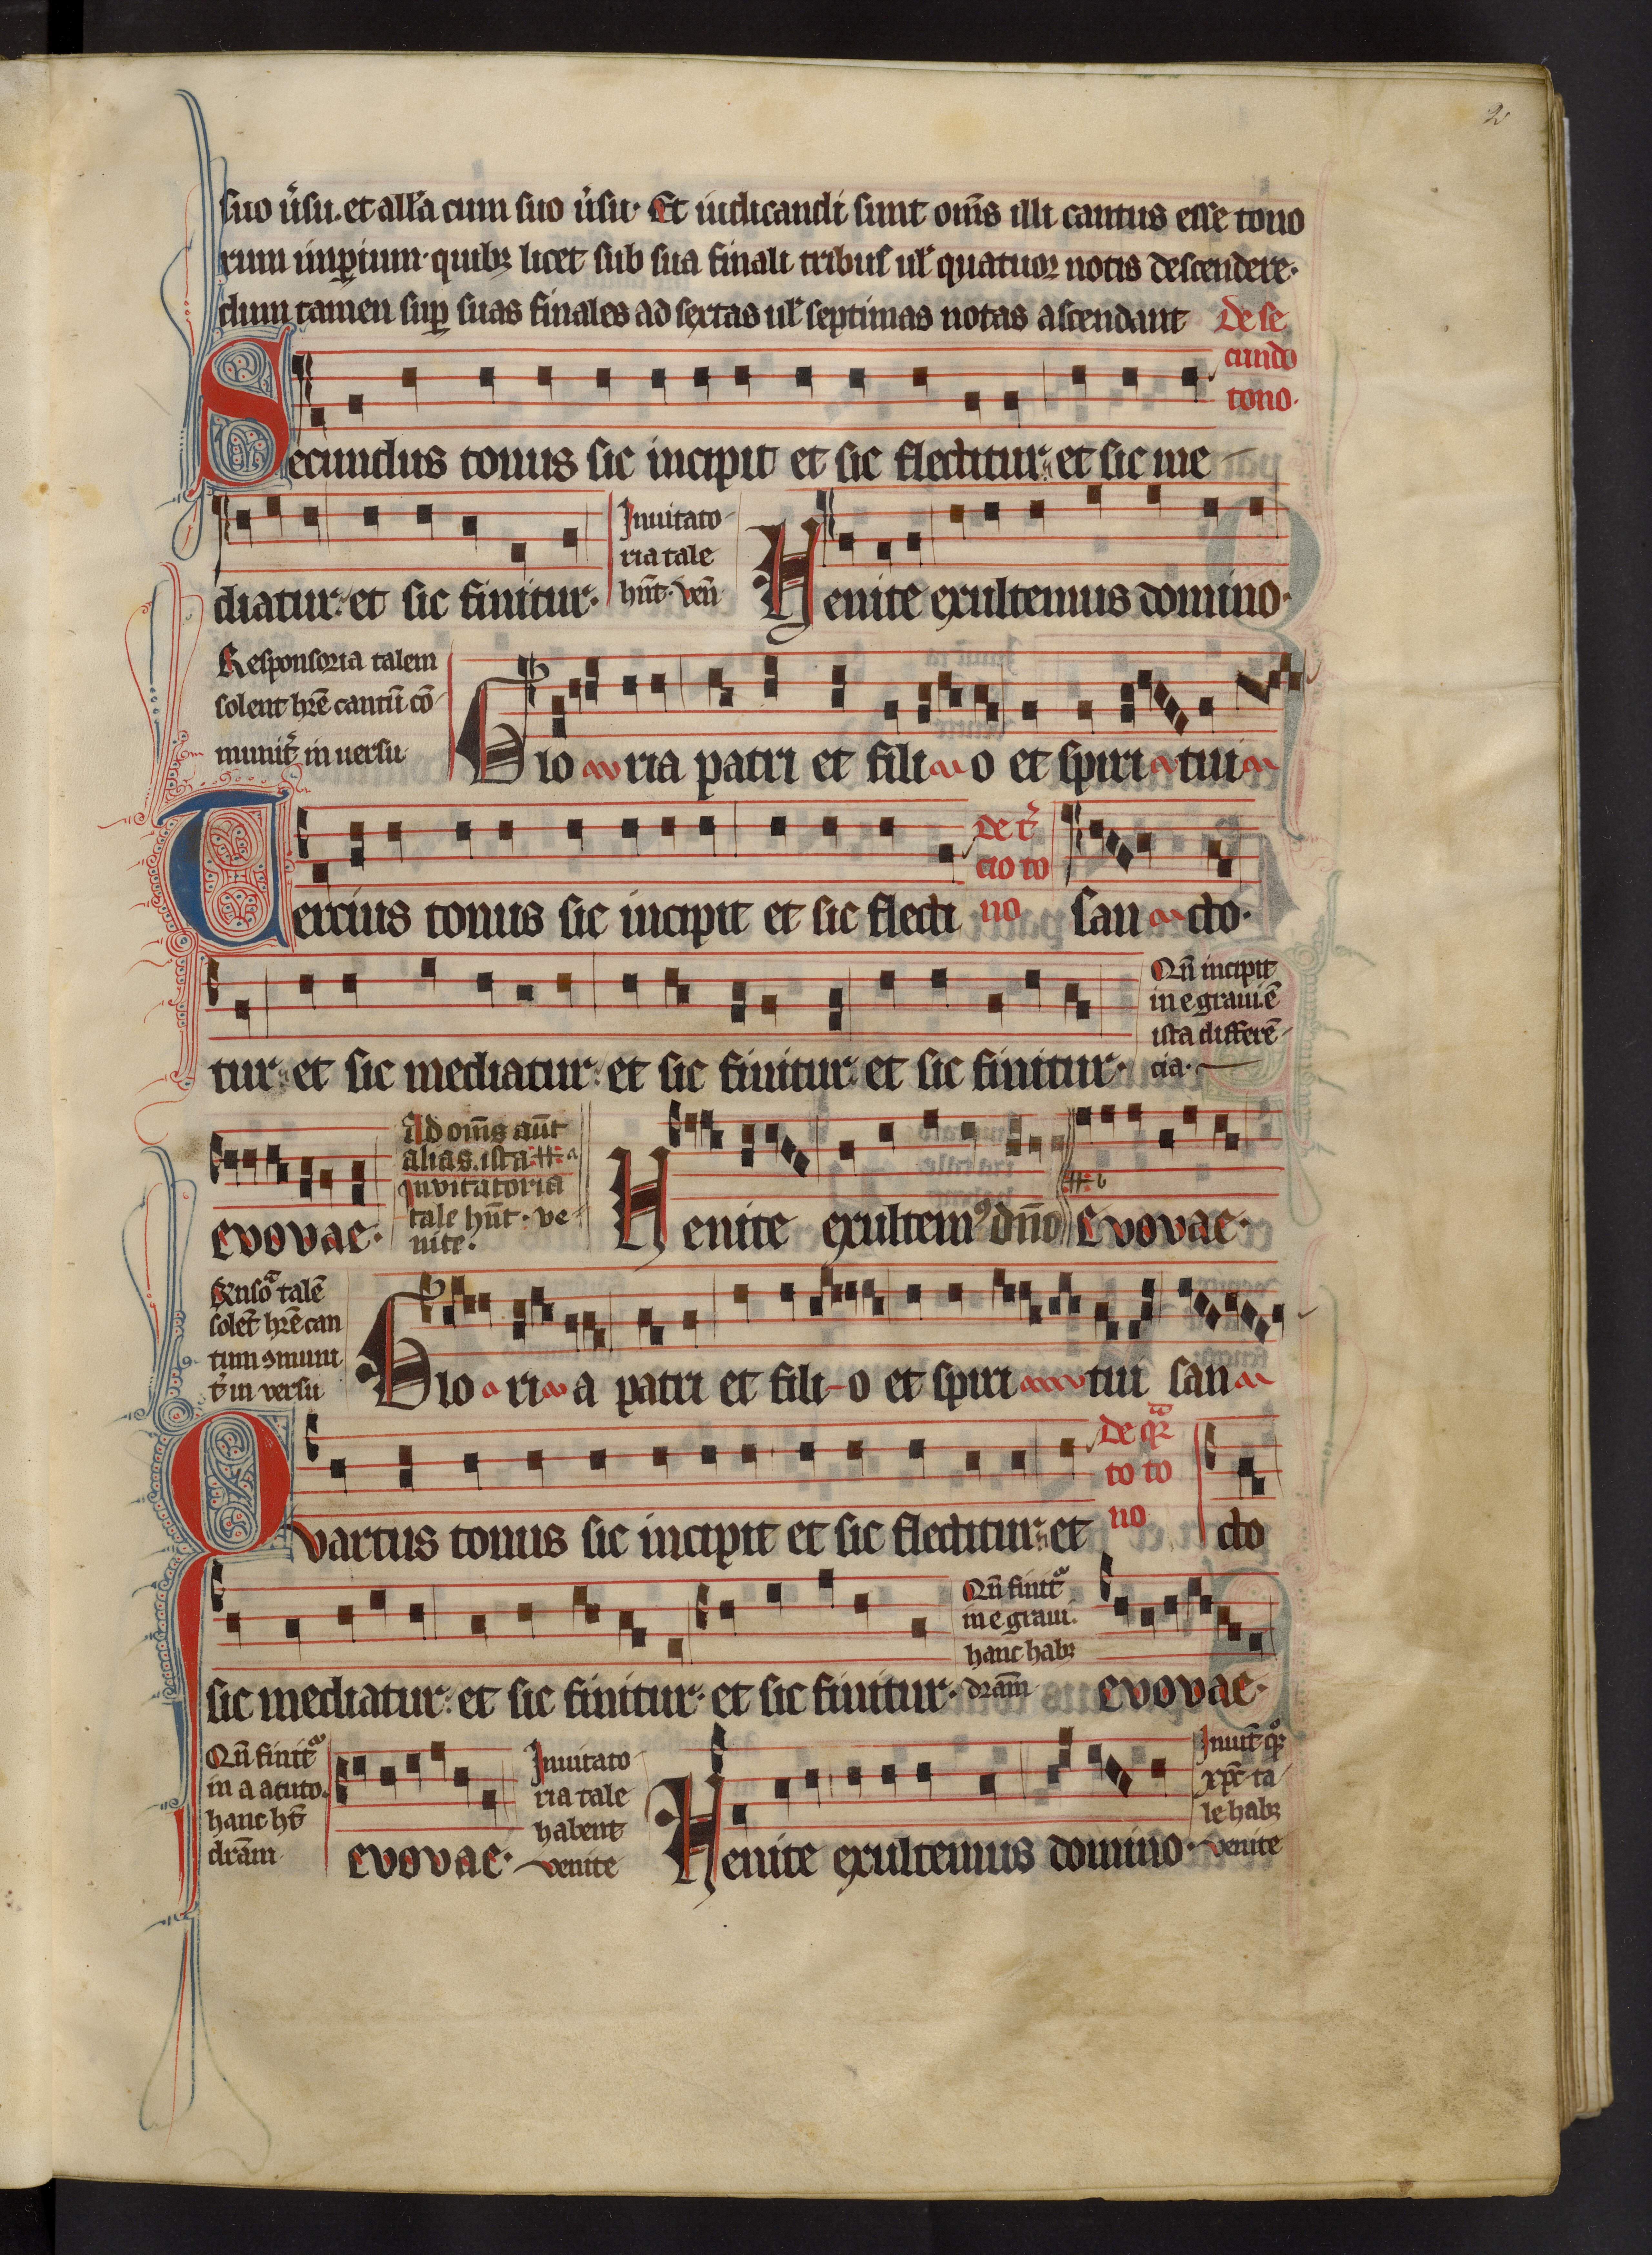 2
suo ũsu. et allĩa cum suo ũsu. Et iudicandi sunt om̃s illi cantus esse tono
rum imꝑium. quibꝫ licet sub sua finali tribus ul̃ quatuor notis descendere.
dum tamen suꝑ suas finales ad sextas ul̃ septimas notas ascendant De se
cundo
tono.
Secundus tonus sic incipit et sic flectitur. et sic me
diatur. et sic finitur.
Inuitato
ria tale
hñt. Veñ
Venite exultemus domino.
Responsoria talem
solent hr̃e cantũ cõ
munit᷑ in uersu
Glo ria patri et fili o et spiri tui
De t᷑
cio to
no
Tercius tonus sic incipit et sic flecti
san cto.
tur. et sic mediatur. et sic finitur. et sic finitur.
Qñ incipit
in e graui ẽ
ista differẽ
cia.
evovae.
Ad om̃s aũt
alias. ista a
Inuitatoria
tale hñt. ve
nite.
Venite exultemꝰ dño
b
evovae.
Rnsoᵃ talẽ
solẽt hr̃e can
tum ꝯmuni
t᷑ in versu
Glo ri a patri et fili o et spiri tui san
De qᷓr
to to
no
Qvartus tonus sic incipit et sic flectitur. et
cto
sic mediatur. et sic finitur. et sic finitur.
Qñ finit᷑
in e graui.
hanc habꝫ
dram̃
evovae.
Qñ finit᷑
in a acuto.
hanc hñt
dr̃am.
evovae.
Inuitato
ria tale
habent
venite
Venite exultemus domino.
Inuit̃ qꝛ
xp̃c ta
le habꝫ
venite